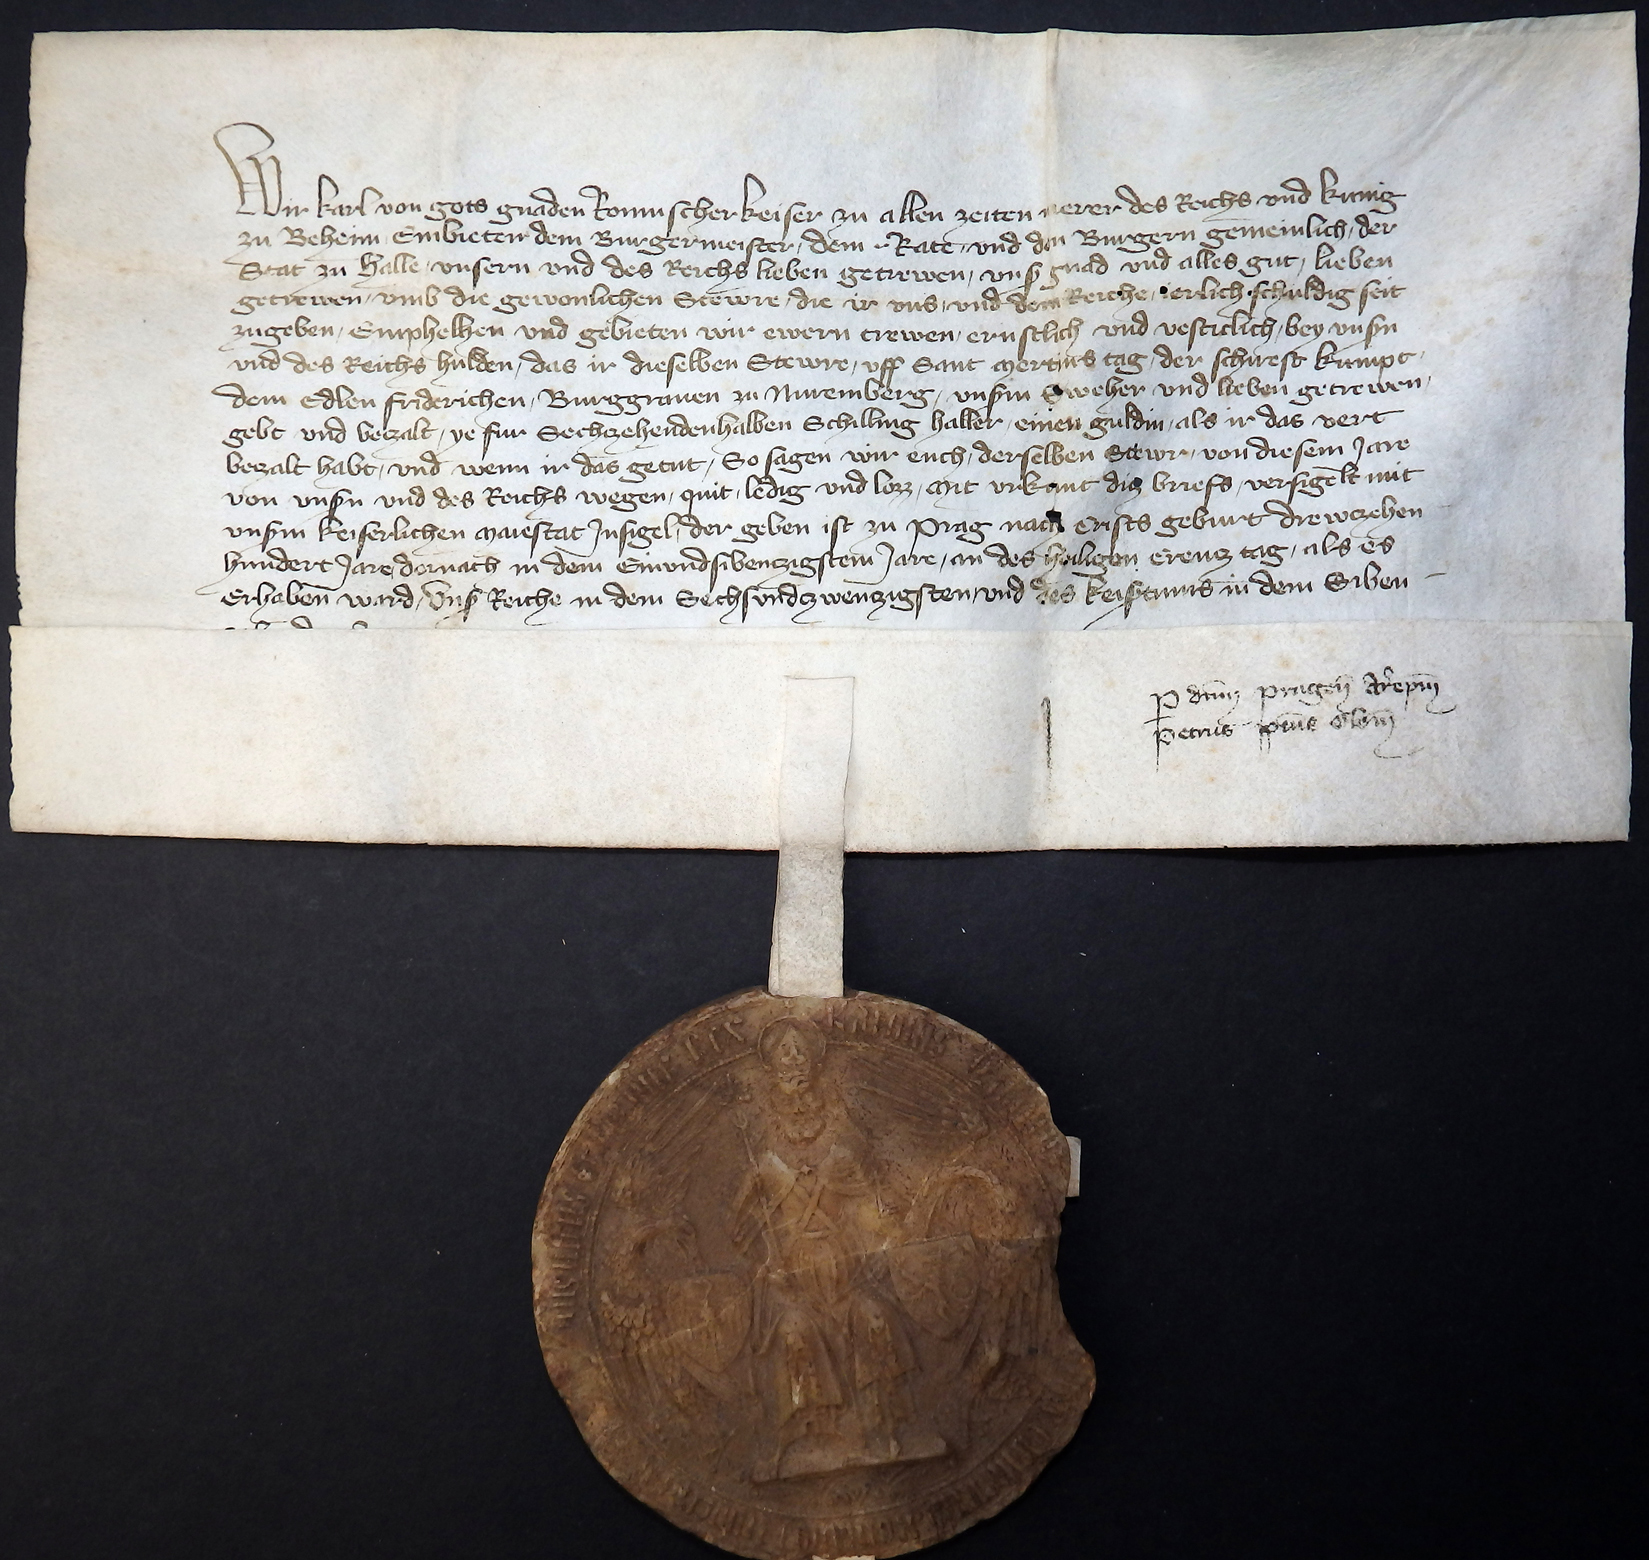 Wir karl von gots gnaden Romischer keiser zu allen zeiten merer des Reichs und kunig
zu Beheim Embieten dem Burgermeister, dem Rate, und den Burgern gemeinlich, der
Stat zu Halle, unsern und des Reichs lieben getrewen, unsß gnad und alles gut, lieben
getrewen, umb die gewonlichen Stewre, die ir uns, und dem Reiche, ierlich schuldig seit
zugeben, Emphelhen und gebieten wir ewern trewen, ernstlich und vesticlich, bey unsßn
und des Reichs hulden, das ir dieselben Stewre, uff Sant mertins tag, der schirest kumpt,
dem Edlen fridrichen, Burggraven zu Nuremberg, unsßm Sweher und lieben getrewen,
gebt und bezalt, ye fur Sechzehendenhalben Schilling haller, einen guldin, als ir das vert
bezalt habt, und wenn ir das getut, So sagen wir euch, derselben Stewr, von diesem Jare
von unsßn und des Reichs wegen, quit, ledig und lozz, Mit urkunt diz briefs, versigelt mit
unsßm keiserlichen maiestat Insigel, der geben ist zu Prag nach Crists geburt drewzehen
hundert Jare, dornach in dem Einundsibenzigstem Jare, an des heiligen Creutz tag, als es
Erhaben ward, Unsß Reiche in dem Sechsundzwenzigsten, und des keisßtums in dem Siben
P dnm Pragen Arepm
Petrus ppnus Olom